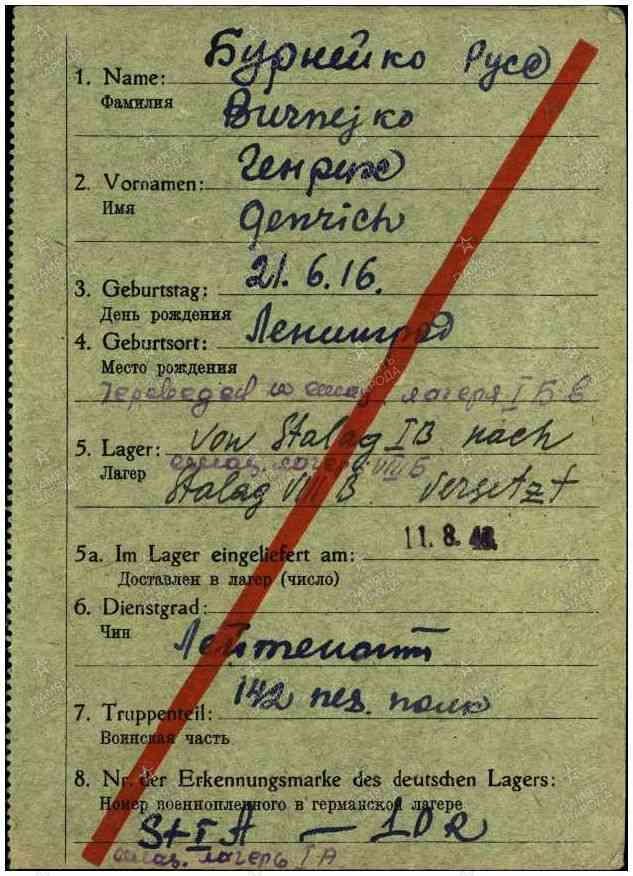 Бурнейко Русс
1. Name:
Фамилия
Burnejko
Генрих
2. Vornamen:
Имя
Genrich
21. 6. 16.
3. Geburtstag:
День рождения
Ленинград
4. Geburtsort:
Место рождения
лагеря I Б в
von Stalag IB nach
5. Lager:
лагерь VIII Б
Лагерь
Stalag VIII B versetzt
11. 8.
5a. Im Lager eingeliefert am:
Доставлен в лагерь (число)
6. Dienstgrad:
Чин
Лейтенант
142 пех. полк
7. Truppenteil:
Воинская часть
8. Nr. der Erkennungsmarke des deutschen Lagers:
Номер военнопленного в германском лагере
St I A —
лагерь I A